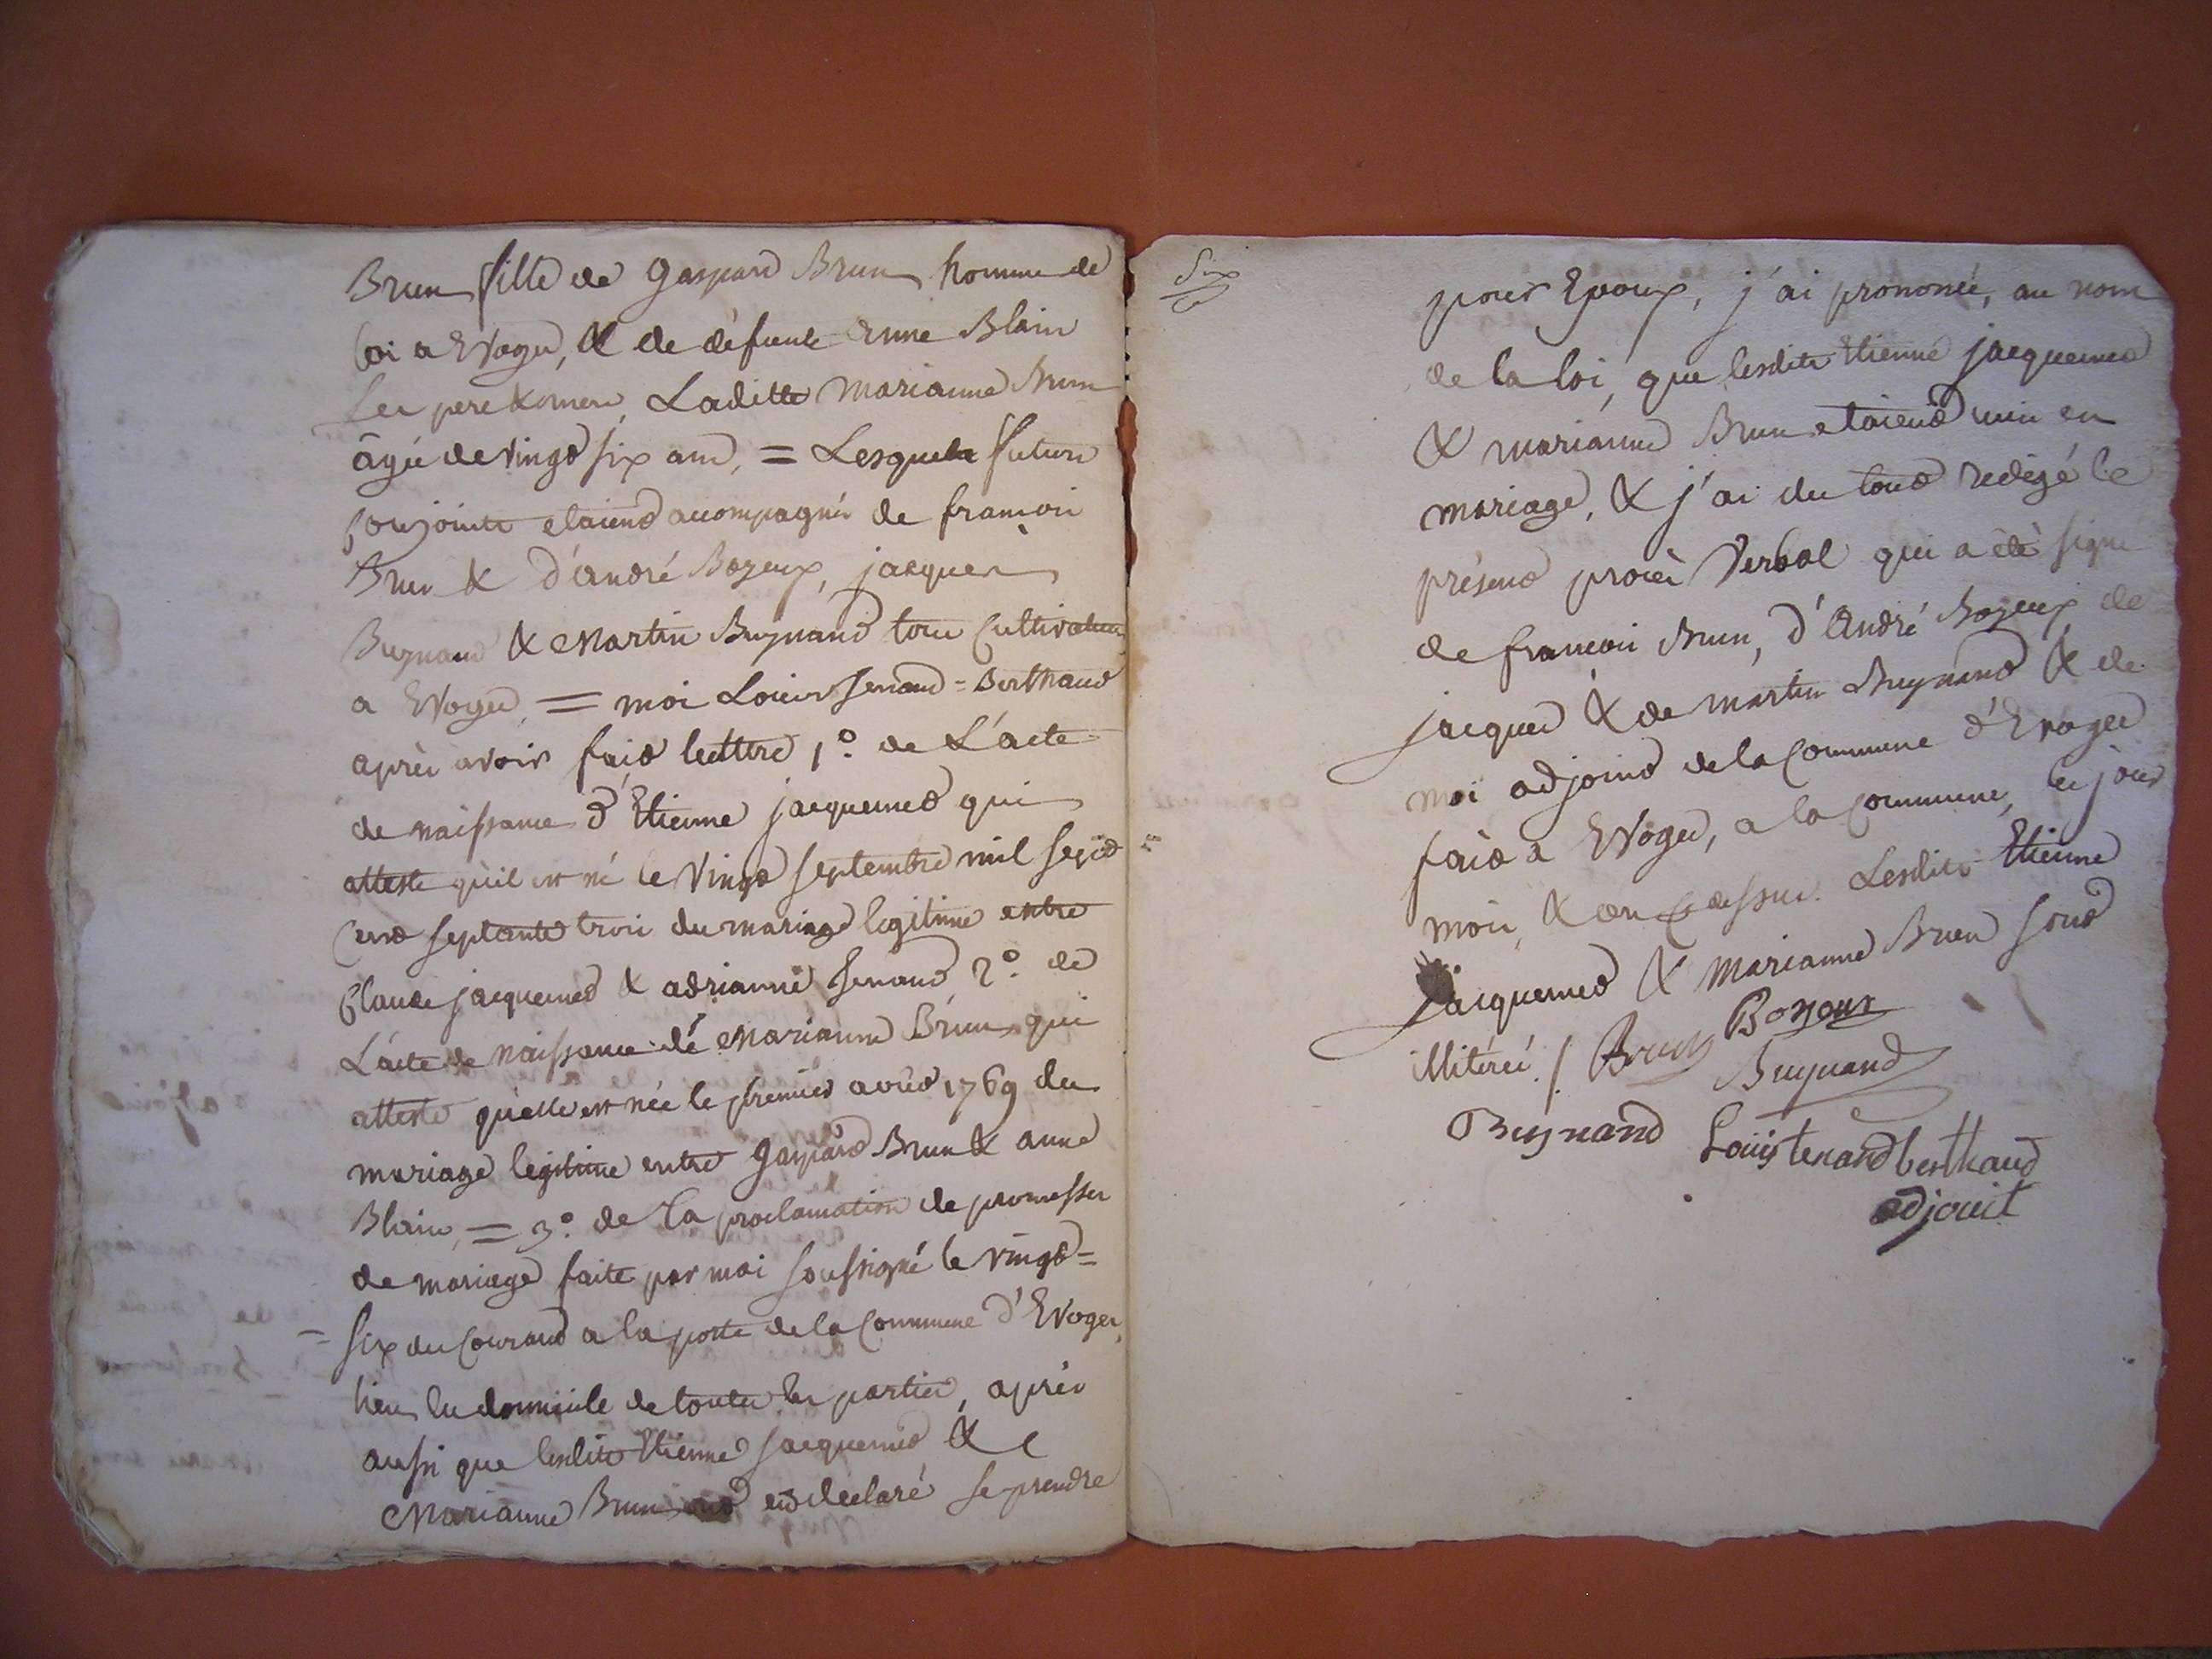 Brun fille de gaspard Brun homme de
loi a Evoges, & de défunte anne Blain
ses pere & mere, Laditte marianne Brun
âgée de vingt six ans, = Lesquels futurs
conjoints etaient accompagnés de francois
Brun & d'andré Bozeux, jacques
Buynand & Martin Buynand tous cultivateurs
a Evoges = moi Louis tenand = Berthaud
après avoir fait lecttre 1.° de L'acte
de naissance d'Etienne jacquemet qui
atteste qu'il est né le vingt septembre mil sept
cent septante trois du mariage legitime entre
Claude jacquemet & adrianne tenand 2.° de
L'acte de naissance de Marianne Brun qui
atteste qu'elle est née le premier août 1769 du
mariage legitime entre gaspard Brun & anne
Blain, = 3.° de la proclamation de promesses
de mariage faite par moi soussigné le vingt =
= six du courant a la porte de la Commune d'Evoges,
lieu du domicile de toutes les parties, après
aussi que lesdits Etienne jacquemet &
Marianne Brun ont eu déclaré se prendre
Six
pour Epoux, j'ai prononcé, au nom
de la loi, que lesdits Etienne jacquemet
& marianne Brun etaient unis en
mariage, & j'ai du tout redigé le
présent procès Verbal qui a été signé
de francois Brun, d'André Bozeux, de
jacques & de martin Buynand & de
moi adjoint de la Commune d'Evoges
fait a Evoges, a la Commune, les jour
mois, & an cy dessus. Lesdits Etienne
jacquemet & Marianne Brun sont
illitérés. / Brun Bozeux
Buynand
Buynand Louis tenand berthaud
adjoint